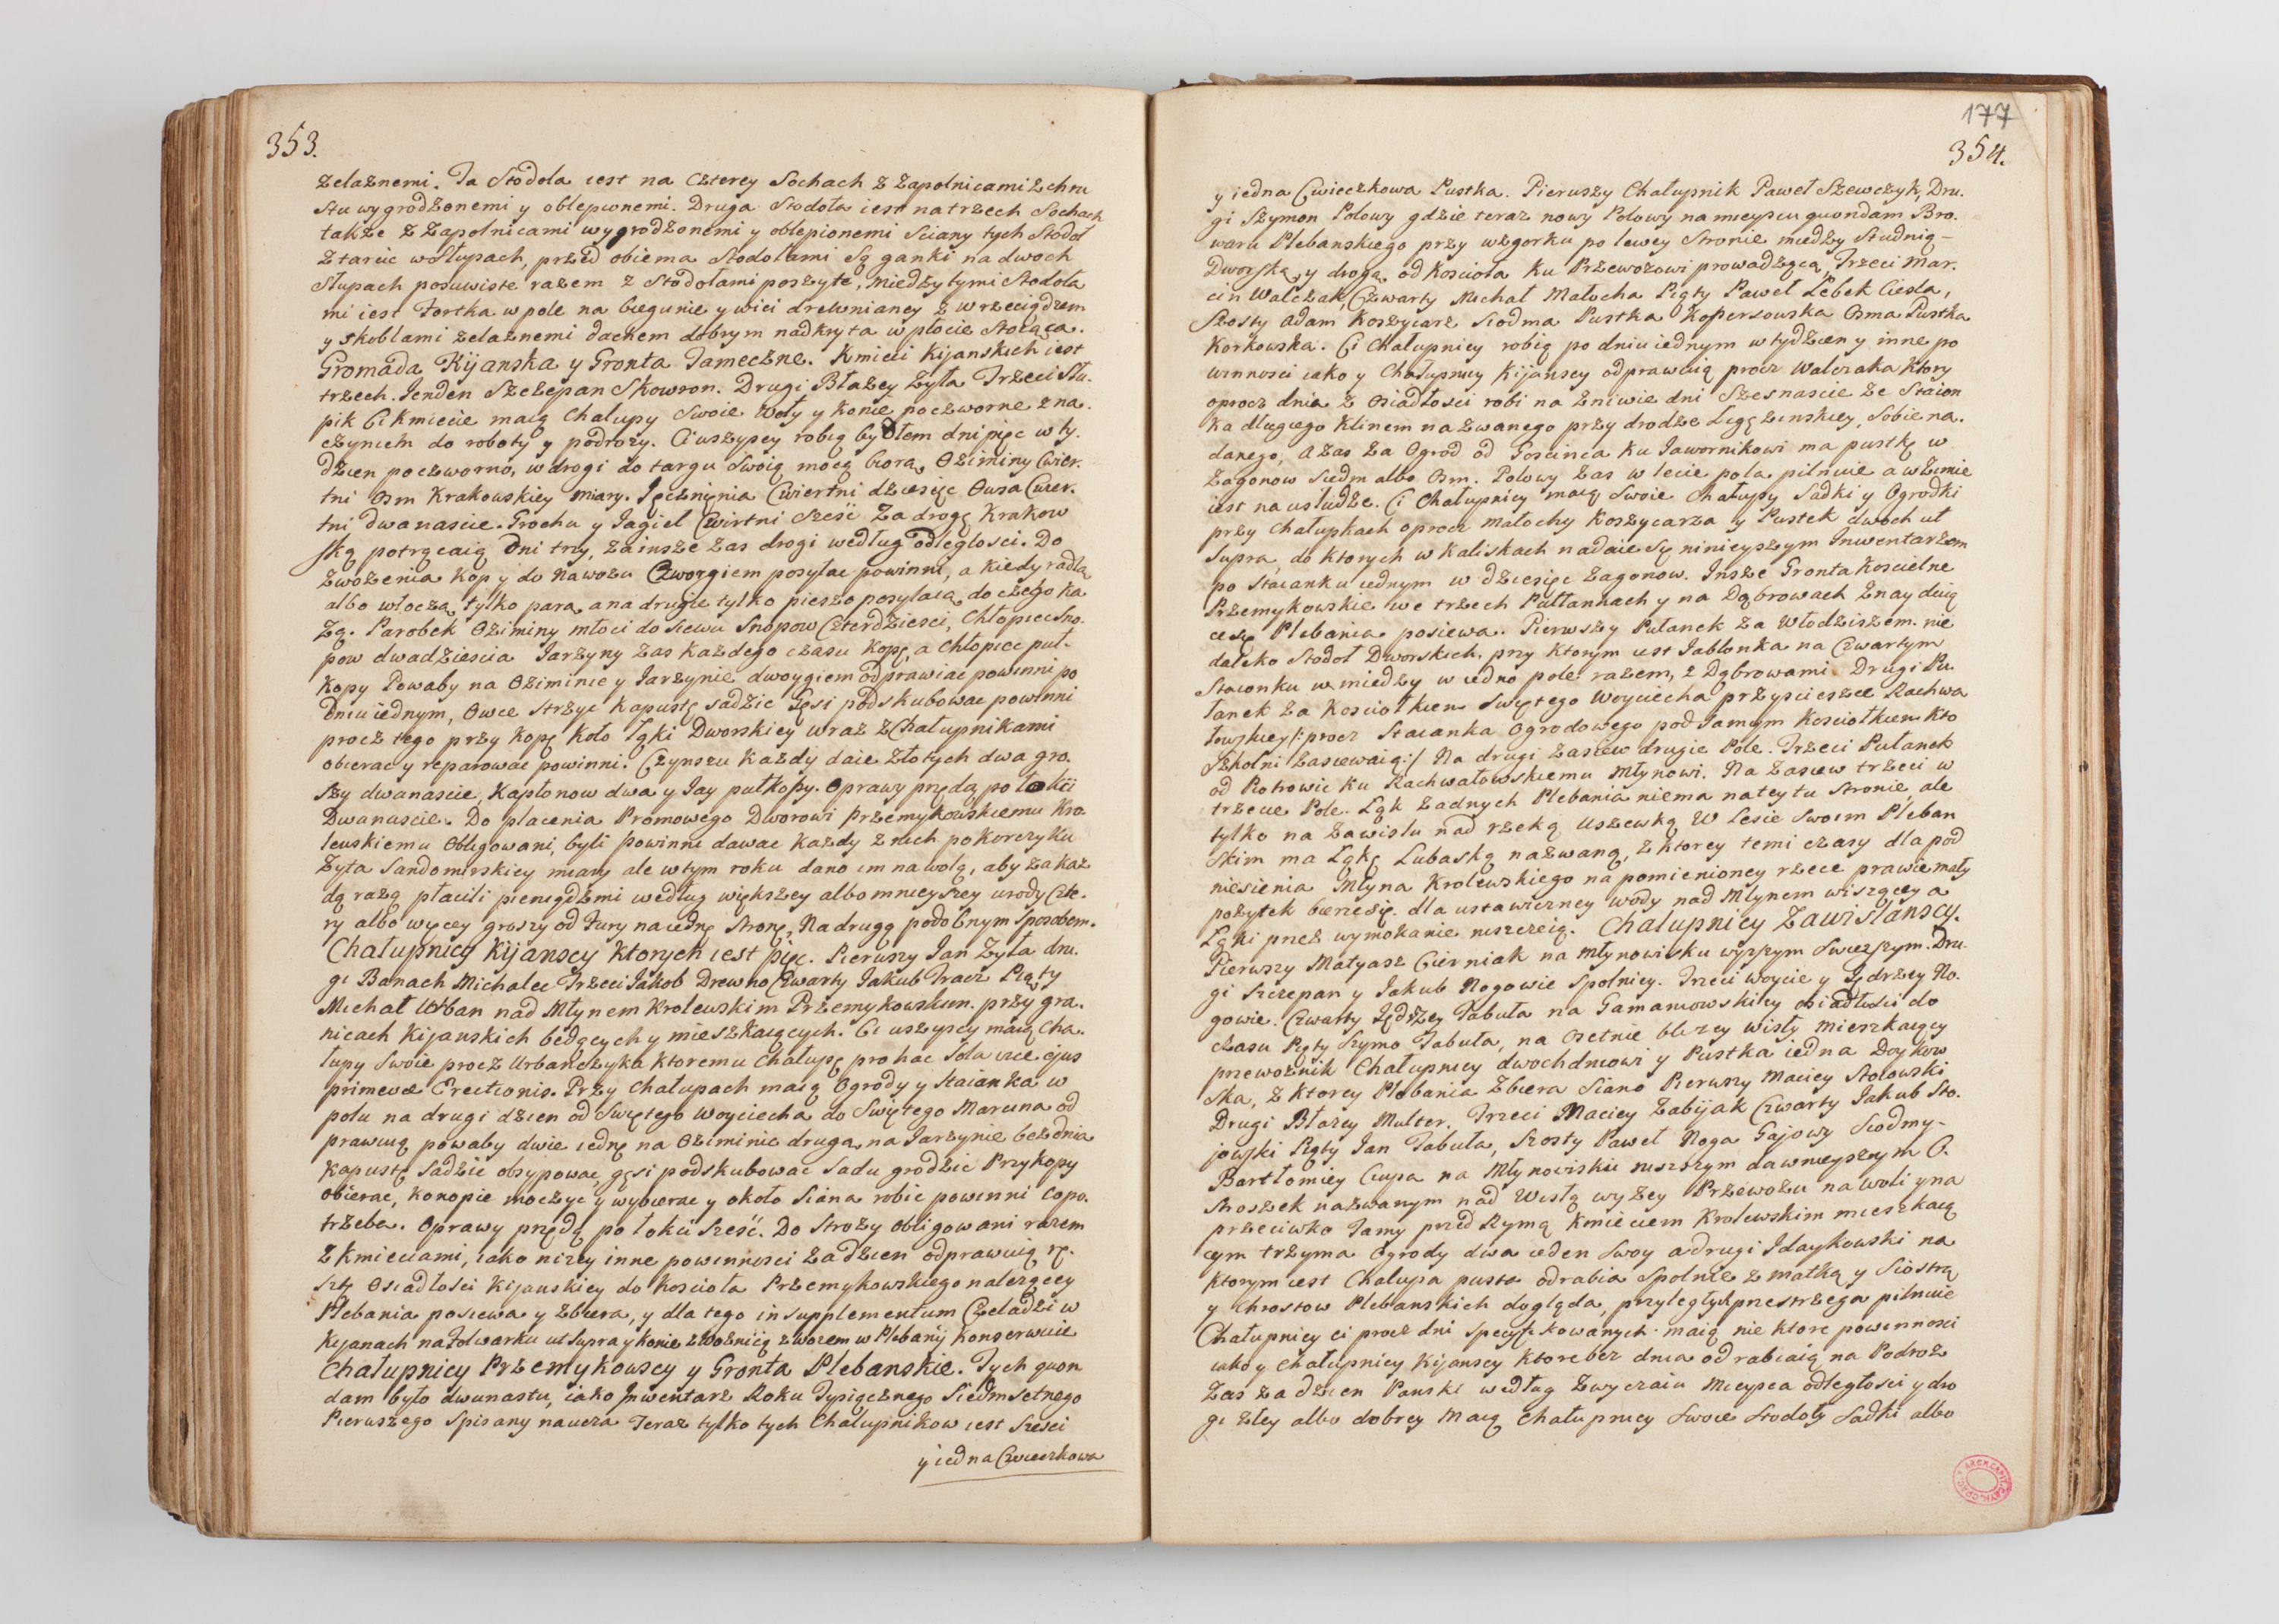 353.
zelaznemi. Ta Stodola iest na czterey Sochach z Zapolnicami z chru
stu wygrodzonemi y oblepionemi. Druga Stodoła iest na trzech Sochach
także z Zapolnicami wygrodzonemi y oblepionemi Sciany tych Stodoł
z tarcic w Słupach, przed obiema Stodołami Są ganki na dwoch
Słupach posuwiste razem z Stodołami poszyte, miedzy tymi Stodoła
mi iest Fortka w pole na biegunie y wici drewnianey z wrzeciądzem
y skoblami zelaznemi dachem dobrym nadkryta w płocie Stoiąca.
Gromada Kijanska y Gronta Tameczne. Kmieci Kijanskich iest
trzech. Jenden Szczepan Skowron. Drugi Błazey Zyła Trzeci Stu.
pik Ci kmiecie maią Chałupy Swoie Woły y Konie poczworne z na.
czyniem do roboty y podrozy. Ci wszyscy robią bydłem dni pięc w ty.
dzien poczworno, w drogi do targu Swoią mocą biorą, Oziminy Cwier.
tni osm Krakowskiey miary. Jęczmienia Cwiertni dziesięc Owsa Cwier.
tni dwanascie. Grochu y Jagieł Cwirtni Sześć Za drogę Krakow
ską potrącaią dni trzy, za insze zas drogi według odległosci. Do
zwozenia Kop y do nawozu Czworgiem posyłac powinni, a kiedy radlą
albo włoczą, tylko parą, a na drugie tylko pieszo posyłaią, do czego ka
zą. Parobek Oziminy młoci do siewu Snopow Czterdziesci, Chłopiec Sno.
pow dwadziescia Jarzyny zas kazdego czasu Kopę, a Chłopiec puł.
kopy Powaby na Oziminie y Jarzynie dwoygiem odprawiac powinni po
dniu iednym, Owce strzyc Kapustę sadzic Gęsi podskubowac powinni
procz tego przy Kopę koło Łąki Dworskiey wraz z Chałupnikami
obierac y reparowac powinni. Czynszu kazdy daie Złotych dwa gro.
szy dwanascie, Kapłonow dwa y Jay pułkopy. Oprawy przędą po łokci
Dwanascie. Do płacenia Promowego Dworowi Przemykowskiemu Kro.
lewskiemu Obligowani, byli powinni dawac kazdy z nich po korczyku
Zyta Sandomirskiey miary ale w tym roku dano im na wolą, aby za kaz
dą razą płacili pieniądzmi według większey albo mnieyszey urody Czte.
ry albo więcey groszy od Fury na iednę Stronę, Na drugą podobnym Sposobem.
Chałupnicy Kijanscy ktorych iest pięc. Pierwszy Jan Zyła dru.
gi Banach Michalec Trzeci Jakob Drewno Czwarty Jakub Tracz Piąty
Michał Urban nad Młynem Krolewskim Przemykowskim przy gra.
nicach Kijanskich będących y mieszkaiących. Ci wszyscy maią Cha.
łupy Swoie procz Urbanczyka ktoremu Chałupę pro hac Sola vice ejus
primevæ Erectionis. Przy Chałupach maią Ogrody y Staianka w
polu na drugi dzien od Swiętego Woyciecha do Swiętego Marcina od
prawuią powaby dwie iednę na Oziminie drugą na Jarzynie bez dnia
Kapustę Sadzic obsypowac, gęsi podskubowac Sadu grodzic Przykopy
obierac, Konopie moczyc y wybierac y około Siana robic powinni co po.
trzeba. Oprawy przędą po łokci sześć. Do Strozy obligowani razem
z kmieciami, iako nizey inne powinnosci za dzien odprawuią re.
sztę Osiadłosci Kijanskiey do Koscioła Przemykowskiego nalezącey
Plebania posiewa y zbiera, y dla tego in supplementum Czeladzi w
Kijanach na Folwarku ut supra y konie z woznicą z wozem w Plebanij konserwuie
Chałupnicy Przemykowscy y Gronta Plebanskie. Tych quon
dam było dwunastu, iako Inwentarz Roku Tysiącznego Siedmsetnego
Pierwszego Spisany naucza Teraz tylko tych Chałupnikow iest Szesci
y iedna Cwieczkowa
177
354.
y iedna Cwieczkowa Pustka. Pierwszy Chałupnik Paweł Szewczyk, Dru.
gi Szymon Polowy gdzie teraz nowy Polowy na mieyscu quondam Bro.
waru Plebanskiego przy wzgorku po lewey Stronie miedzy Studnią
Dworską, y drogą od Koscioła ku Przewozowi prowadzącą, Trzeci Mar.
cin Walczak, Czwarty Michał Małocha Piąty Paweł Lebek Ciesla,
Szosty Adam Koszycarz Siodma Pustka Kopersowska Osma Pustka
Korkowska. Ci Chałupnicy robią po dniu iednym w tydzien y inne po
winnosci iako y Chałupnicy Kijanscy odprawuią procz Walczaka ktory
oprocz dnia z osiadłosci robi na zniwie dni Szesnascie ze Staion
ka długiego Klinem nazwanego przy drodze Łęgzinskiey, Sobie na.
danego, a zas za Ogrod od Goscinca ku Jawornikowi ma pustkę w
Zagonow Siedm albo Osm. Polowy zas w lecie pola pilnuie a w zimie
iest na usłudze. Ci Chałupnicy maią Swoie Chałupy Sadki y Ogrodki
przy Chałupkach oprocz Małochy Koszycarza y Pustek dwoch ut
Supra, do ktorych w Kaliskach nadaie Się ninieyszym Inwentarzem
po Staianku iednym w dziesięc Zagonow. Insze Gronta Koscielne
Przemykowskie we trzech Pułłankach y na Dąbrowach Znayduią
ce się Plebania posiewa. Pierwszy Pułanek za Włodziszem. nie
daleko Stodoł Dworskich. przy ktorym iest Jabłonka na Czwartym
Staionku w miedzy w iedno pole razem, z Dąbrowami. Drugi Pu
łanek za Kosciołkiem Swiętego Woyciecha przy sciezce Rachwa
łowskiey /: procz Staianka Ogrodowego pod Samym Kosciołkiem kto
Szkolni zasiewaią :/ Na drugi Zasiew drugie Pole. Trzeci Pułanek
od Piotrowic ku Rachwałowskiemu Młynowi. Na Zasiew trzeci w
trzecie Pole. Łąk zadnych Plebania niema na tey tu Stronie, ale
tylko na Zawislu nad rzeką Uszewką W lesie Swoim Pleban
skim ma Łąkę Lubaską nazwaną, z ktorey temi czasy dla pod
niesienia Młyna Krolewskiego na pomienioney rzece prawie mały
pozytek bierze się. dla ustawiczney wody nad Młynem wiszącey a
Łąki przez wymokanie niszczeią. Chałupnicy Zawislanscy.
Pierwszy Matyasz Cierniak na Młynowisku wyzszym Swiezszym. Dru.
gi Szczepan y Jakub Nogowie Spolnicy. Trzeci Woycie y Jędrzey No.
gowie. Czwarty Jędrzey Tabuła na Gamaniowskiey osiadłosci do
czasu Piąty Szymo Tabuła, na Osetnie blizey Wisły mieszkaiący
przewoznik Chałupnicy dwochdniowi y Pustka iedna Doykow
ska, z ktorey Plebania zbiera Siano Pierwszy Maciey Stolowski
Drugi Błazey Multer. Trzeci Maciey Zabijak Czwarty Jakub Sto.
jowski Piąty Jan Tabuła, Szosty Paweł Noga Gajowy Siodmy
Bartłomiey Ciupa na Młynowisku niszszym dawnieyszym O.
Stroszek nazwanym nad Wisłą wyzey Przewozu na woli y na
przeciwko Tamy przed Szymą Kmieciem Krolewskim mieszkaią
cym trzyma Ogrody dwa ieden Swoy a drugi Idaykowski na
ktorym iest Chałupa pusta odrabia Spolnie z matką y Siostrą
y Chrostow Plebanskich dogląda, przyległych przestrzega pilnuie
Chałupnicy ci procz dni specyfikowanych maią nie ktore powinnosci
iako y Chałupnicy Kijanscy ktore bez dnia odrabiaią na Podroz
Zas za dzien Panski według Zwyczaiu Mieysca odległosci y dro
gi złey albo dobrey Maią Chałupnicy Swoie Stodoły Sadki albo